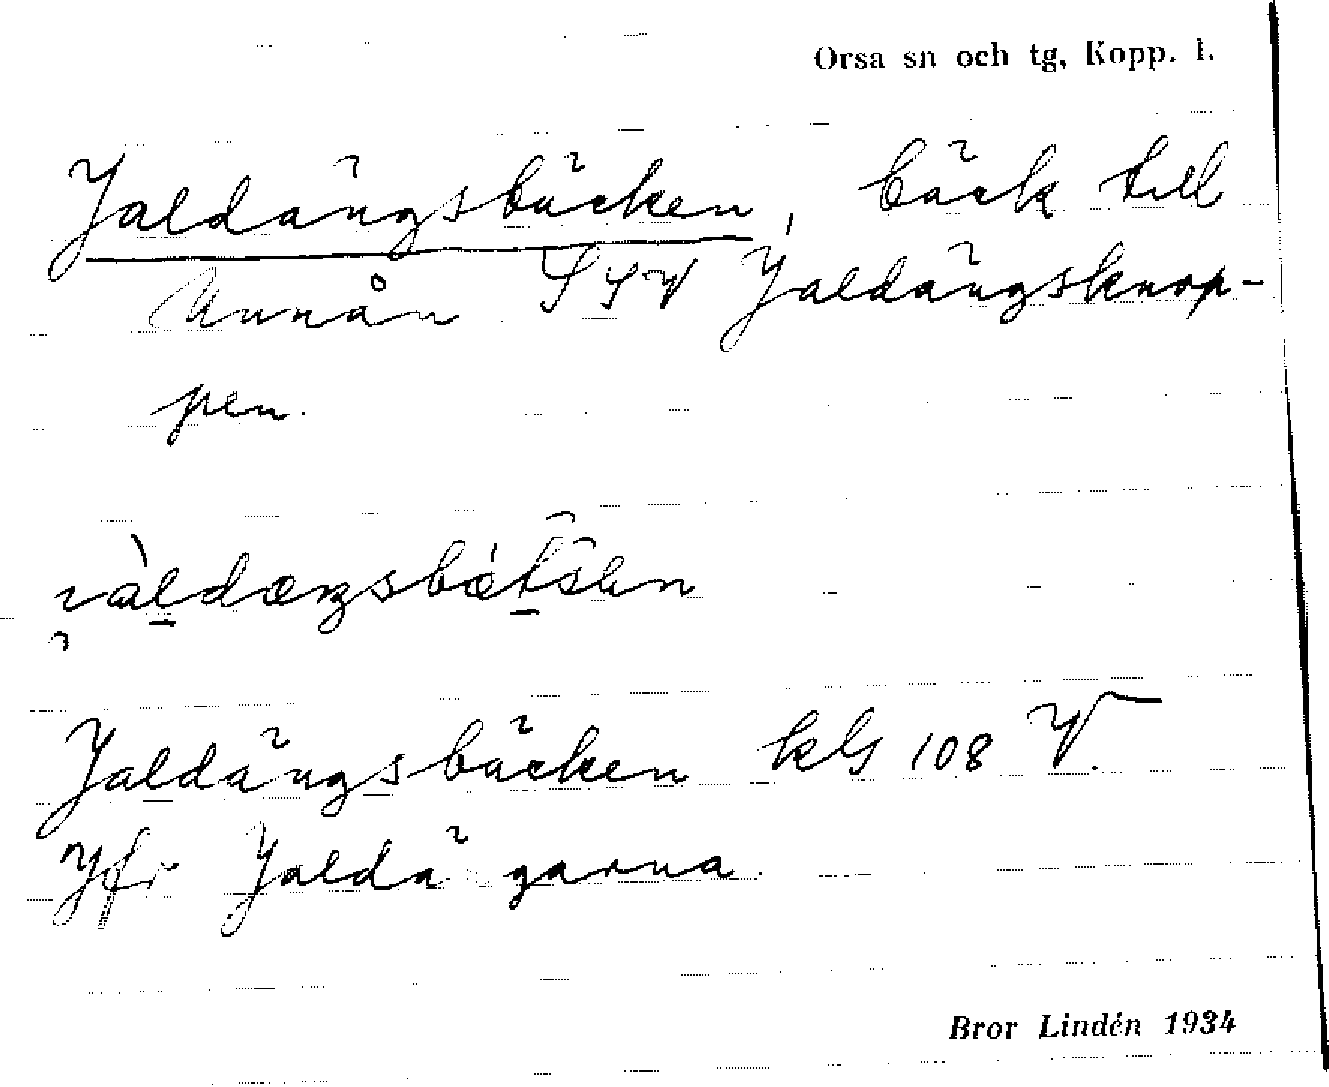 Orsa sn och tg, Kopp. l.
Jaldängsbäcken, bäck till
Unnån SSV Jaldängsknop-
pen.
Jaldängsbäcken kbl 108 V.
Jfr Jaldä garna
Bror Lindén 1934